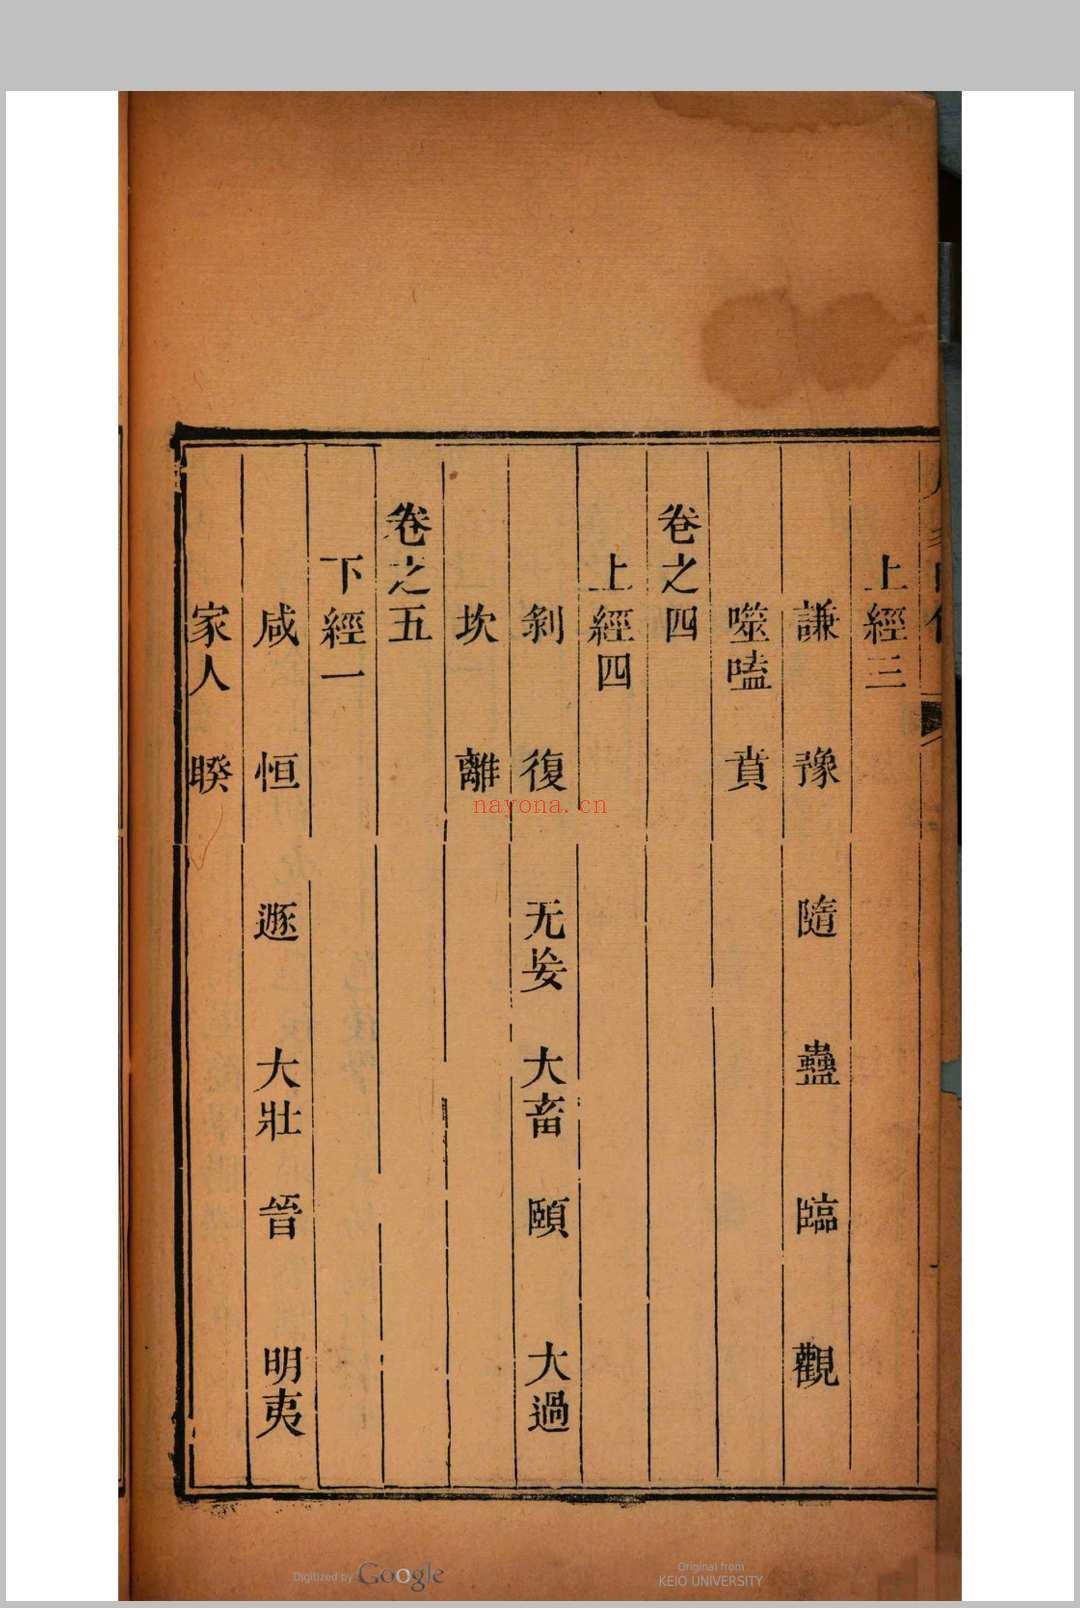 上經三
謙 豫 隨 蠱 臨 觀
噬嗑 賁
卷之四
上經四
剝 復 无妄 大畜 頤 大過
坎 離
卷之五
下經一
咸 恒 遯 大壯 晉 明夷
家人 睽
nayona.cn
Digitized by Google
Original from
KEIO UNIVERSITY